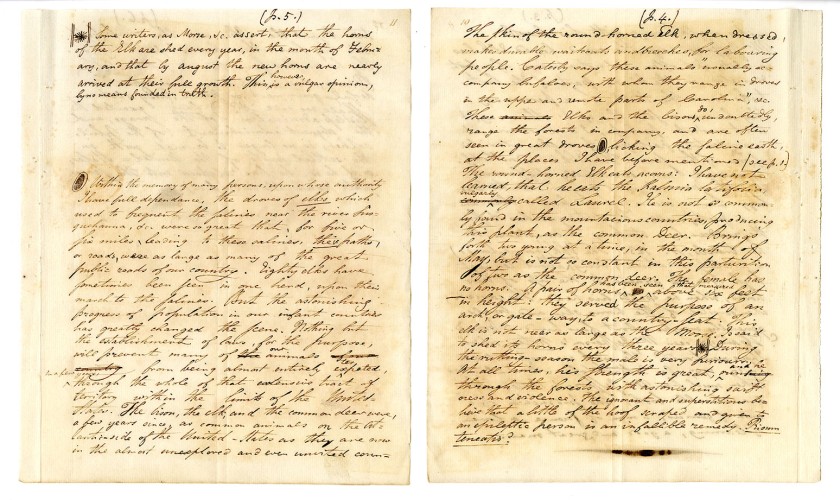 (p. 5.) 11
Some writers, as Morse, &c. assert, that the horns
of the Elk are shed every year, in the month of Febru-
ary, and that by august the new horns are nearly
arrived at their full growth. This, however is a vulgar opinion,
by no means founded in truth.
Within the memory of many persons, upon whose authority
I have full dependance, the droves of elks which
used to frequent the salines near the river Sus-
quehanna, &c. were so great that, for five or
six miles, leading to these salines, their paths,
or roads, were as large as many of the great
public roads of our country. Eighty elks have
sometimes been seen in one herd, upon their
march to the salines. But the astonishing
progress of population in our infant countries
has greatly changed the scene. Nothing but
the establishment of laws, for the purpose,
will prevent many of our animals
from being almost entirely
through the whole of that extensive tract of
territory within the limits of the United
States. The bison, the elk, and the common deer were,
a few years since, as common animals on the
side of the United-States as they are now
in the almost unexplored and even unvisited coun-
(p. 4.)
The skin of the round-horned Elk, when dressed,
makes durable waistcoats and breeches, for labouring
people. Catesby says these animals "usually ac-
company bufaloes, with whom they range in droves
in the upper and remote parts of Carolina", &c.
These Elks and the bison do, undoubtedly,
range the forests in company, and are often
seen in great droves, licking the saline earth,
at the places I have before mentioned (see p. 1.)
The round-horned Elk eats acorns: I have not
learned, that he eats the Kalmia latifolia
vulgarly called Laurel. He is not so common-
ly found in the mountainous countries, producing
this plant, as the common Deer. Brings
forth two young at a time, in the month of
May, but is not so constant in this parturition
of two as the common deer. The female has
no horns. A pair of horns has been seen that measured above six feet
in height: they served the purpose of an
arch or gate-way to a country seat. This
elk is not near as large as the Moose. Is said
to shed its horns every three years. During
the rutting-season the male is very furious.
At all times, his strength is great, and he
through the forests, with astonishing swift-
ness and violence. The ignorant and superstitious be-
lieve that a little of the hoof scraped and given to
an epileptic person is an infallible remedy.